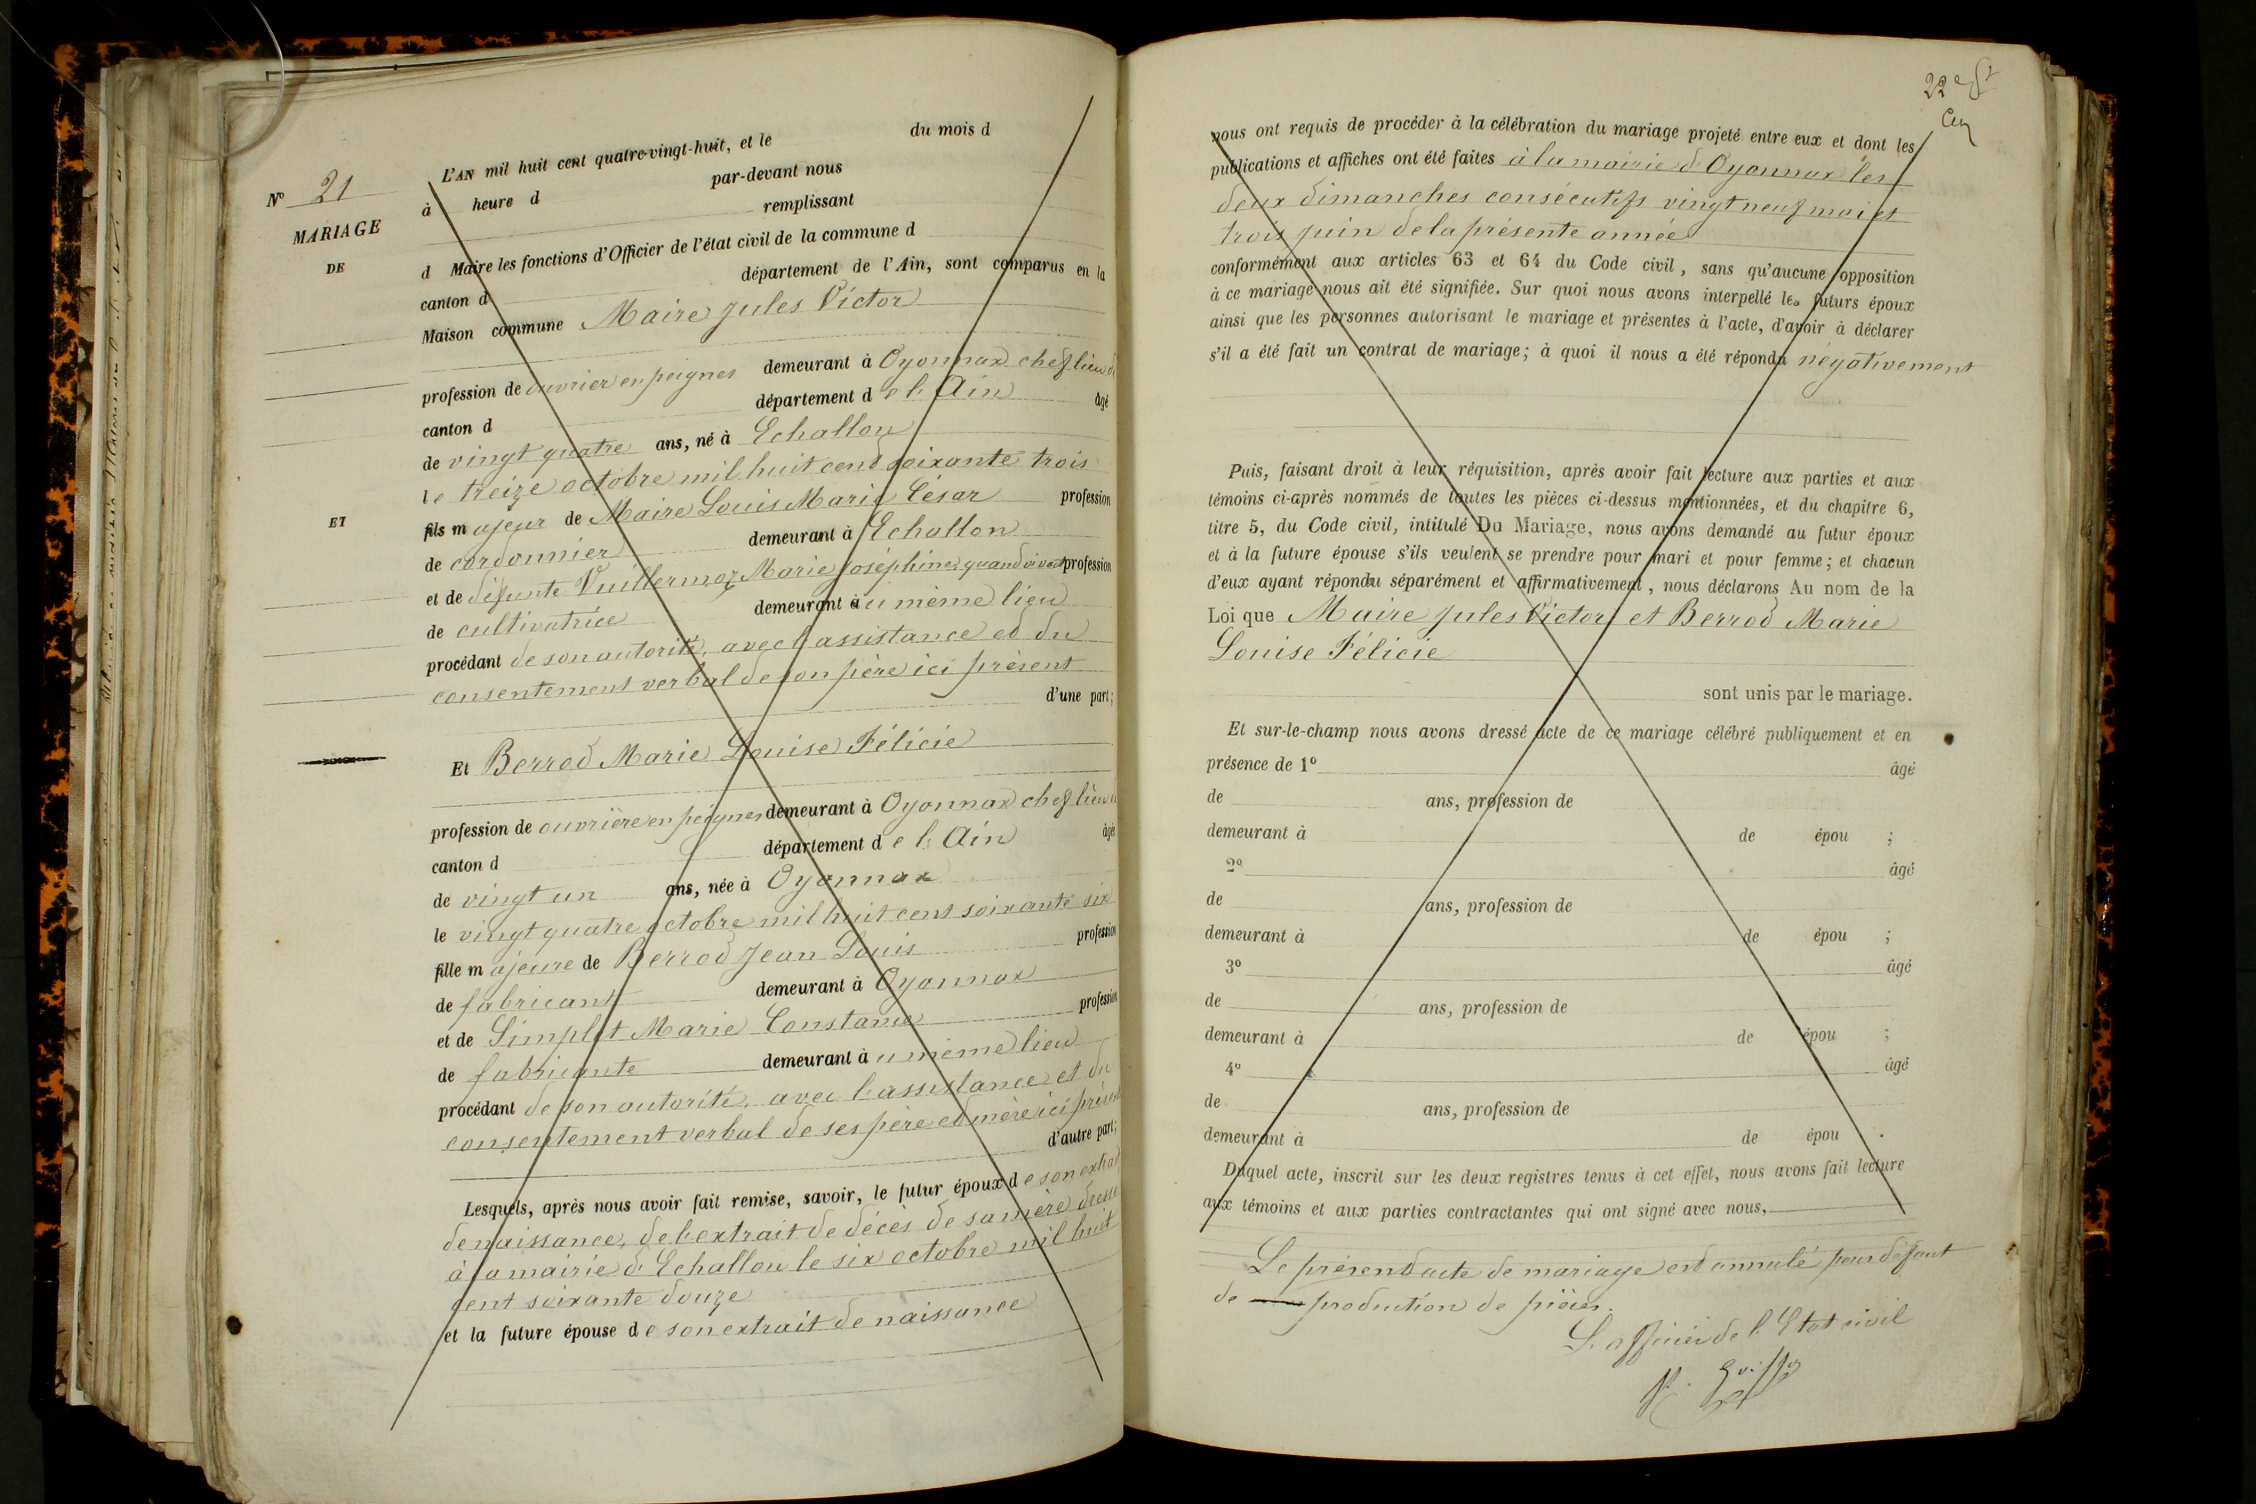 N° 21
MARIAGE
DE
ET
L'AN mil huit cent quatre-vingt-huit, et le du mois d
à heure d par-devant nous
remplissant
d Maire les fonctions d'Officier de l'état civil de la commune d
canton d département de l'Ain, sont comparus en la
Maison commune Maire Jules Victor
profession de ouvrier en peignes demeurant à Oyonnax chef lieu d
canton d département de l'Ain âgé
de vingt quatre ans, né à Echallon
le treize octobre mil huit cent soixante trois
fils majeur de Maire Louis Marie César profession
de cordonnier demeurant à Echallon
et de défunte Vuillermoz Marie Joséphine, quand vivait profession
de cultivatrice demeurant au même lieu
procédant de son autorité, avec l'assistance et du
consentement verbal de son père ici présent
d'une part;
Et Berrod Marie Louise Félicie
profession de ouvrière en peignes demeurant à Oyonnax chef lieu
canton d département de l'Ain âgée
de vingt un ans, née à Oyonnax
le vingt quatre octobre mil huit cent soixante six
fille majeure de Berrod Jean Louis profession
de fabricant demeurant à Oyonnax
et de Simplet Marie Constance profession
de fabricante demeurant au même lieu
procédant de son autorité, avec l'assistance et du
consentement verbal de ses père et mère ici présents
d'autre part;
Lesquels, après nous avoir fait remise, savoir, le futur époux de son extrait
de naissance, de l'extrait de décès de sa mère dressé
à la mairie d'Echallon le six octobre mil huit
cent soixante douze
et la future épouse de son extrait de naissance
22e
nous ont requis de procéder à la célébration du mariage projeté entre eux et dont les
publications et affiches ont été faites à la mairie d'Oyonnax les
deux dimanches consécutifs vingt neuf mai et
trois juin de la présente année
conformément aux articles 63 et 64 du Code civil, sans qu'aucune opposition
à ce mariage nous ait été signifiée. Sur quoi nous avons interpellé les futurs époux
ainsi que les personnes autorisant le mariage et présentes à l'acte, d'avoir à déclarer
s'il a été fait un contrat de mariage; à quoi il nous a été répondu négativement
Puis, faisant droit à leur réquisition, après avoir fait lecture aux parties et aux
témoins ci-après nommés de toutes les pièces ci-dessus mentionnées, et du chapitre 6,
titre 5, du Code civil, intitulé Du Mariage, nous avons demandé au futur époux
et à la future épouse s'ils veulent se prendre pour mari et pour femme; et chacun
d'eux ayant répondu séparément et affirmativement, nous déclarons Au nom de la
Loi que Maire Jules Victor et Berrod Marie
Louise Félicie
sont unis par le mariage.
Et sur-le-champ nous avons dressé acte de ce mariage célébré publiquement et en
présence de 1° âgé
de ans, profession de
demeurant à de épou ;
2° âgé
de ans, profession de
demeurant à de épou ;
3° âgé
de ans, profession de
demeurant à de épou ;
4° âgé
de ans, profession de
demeurant à de épou .
Duquel acte, inscrit sur les deux registres tenus à cet effet, nous avons fait lecture
aux témoins et aux parties contractantes qui ont signé avec nous,
Le présent acte de mariage est annulé pour défaut
de production de pièces.
L'officier de l'Etat civil